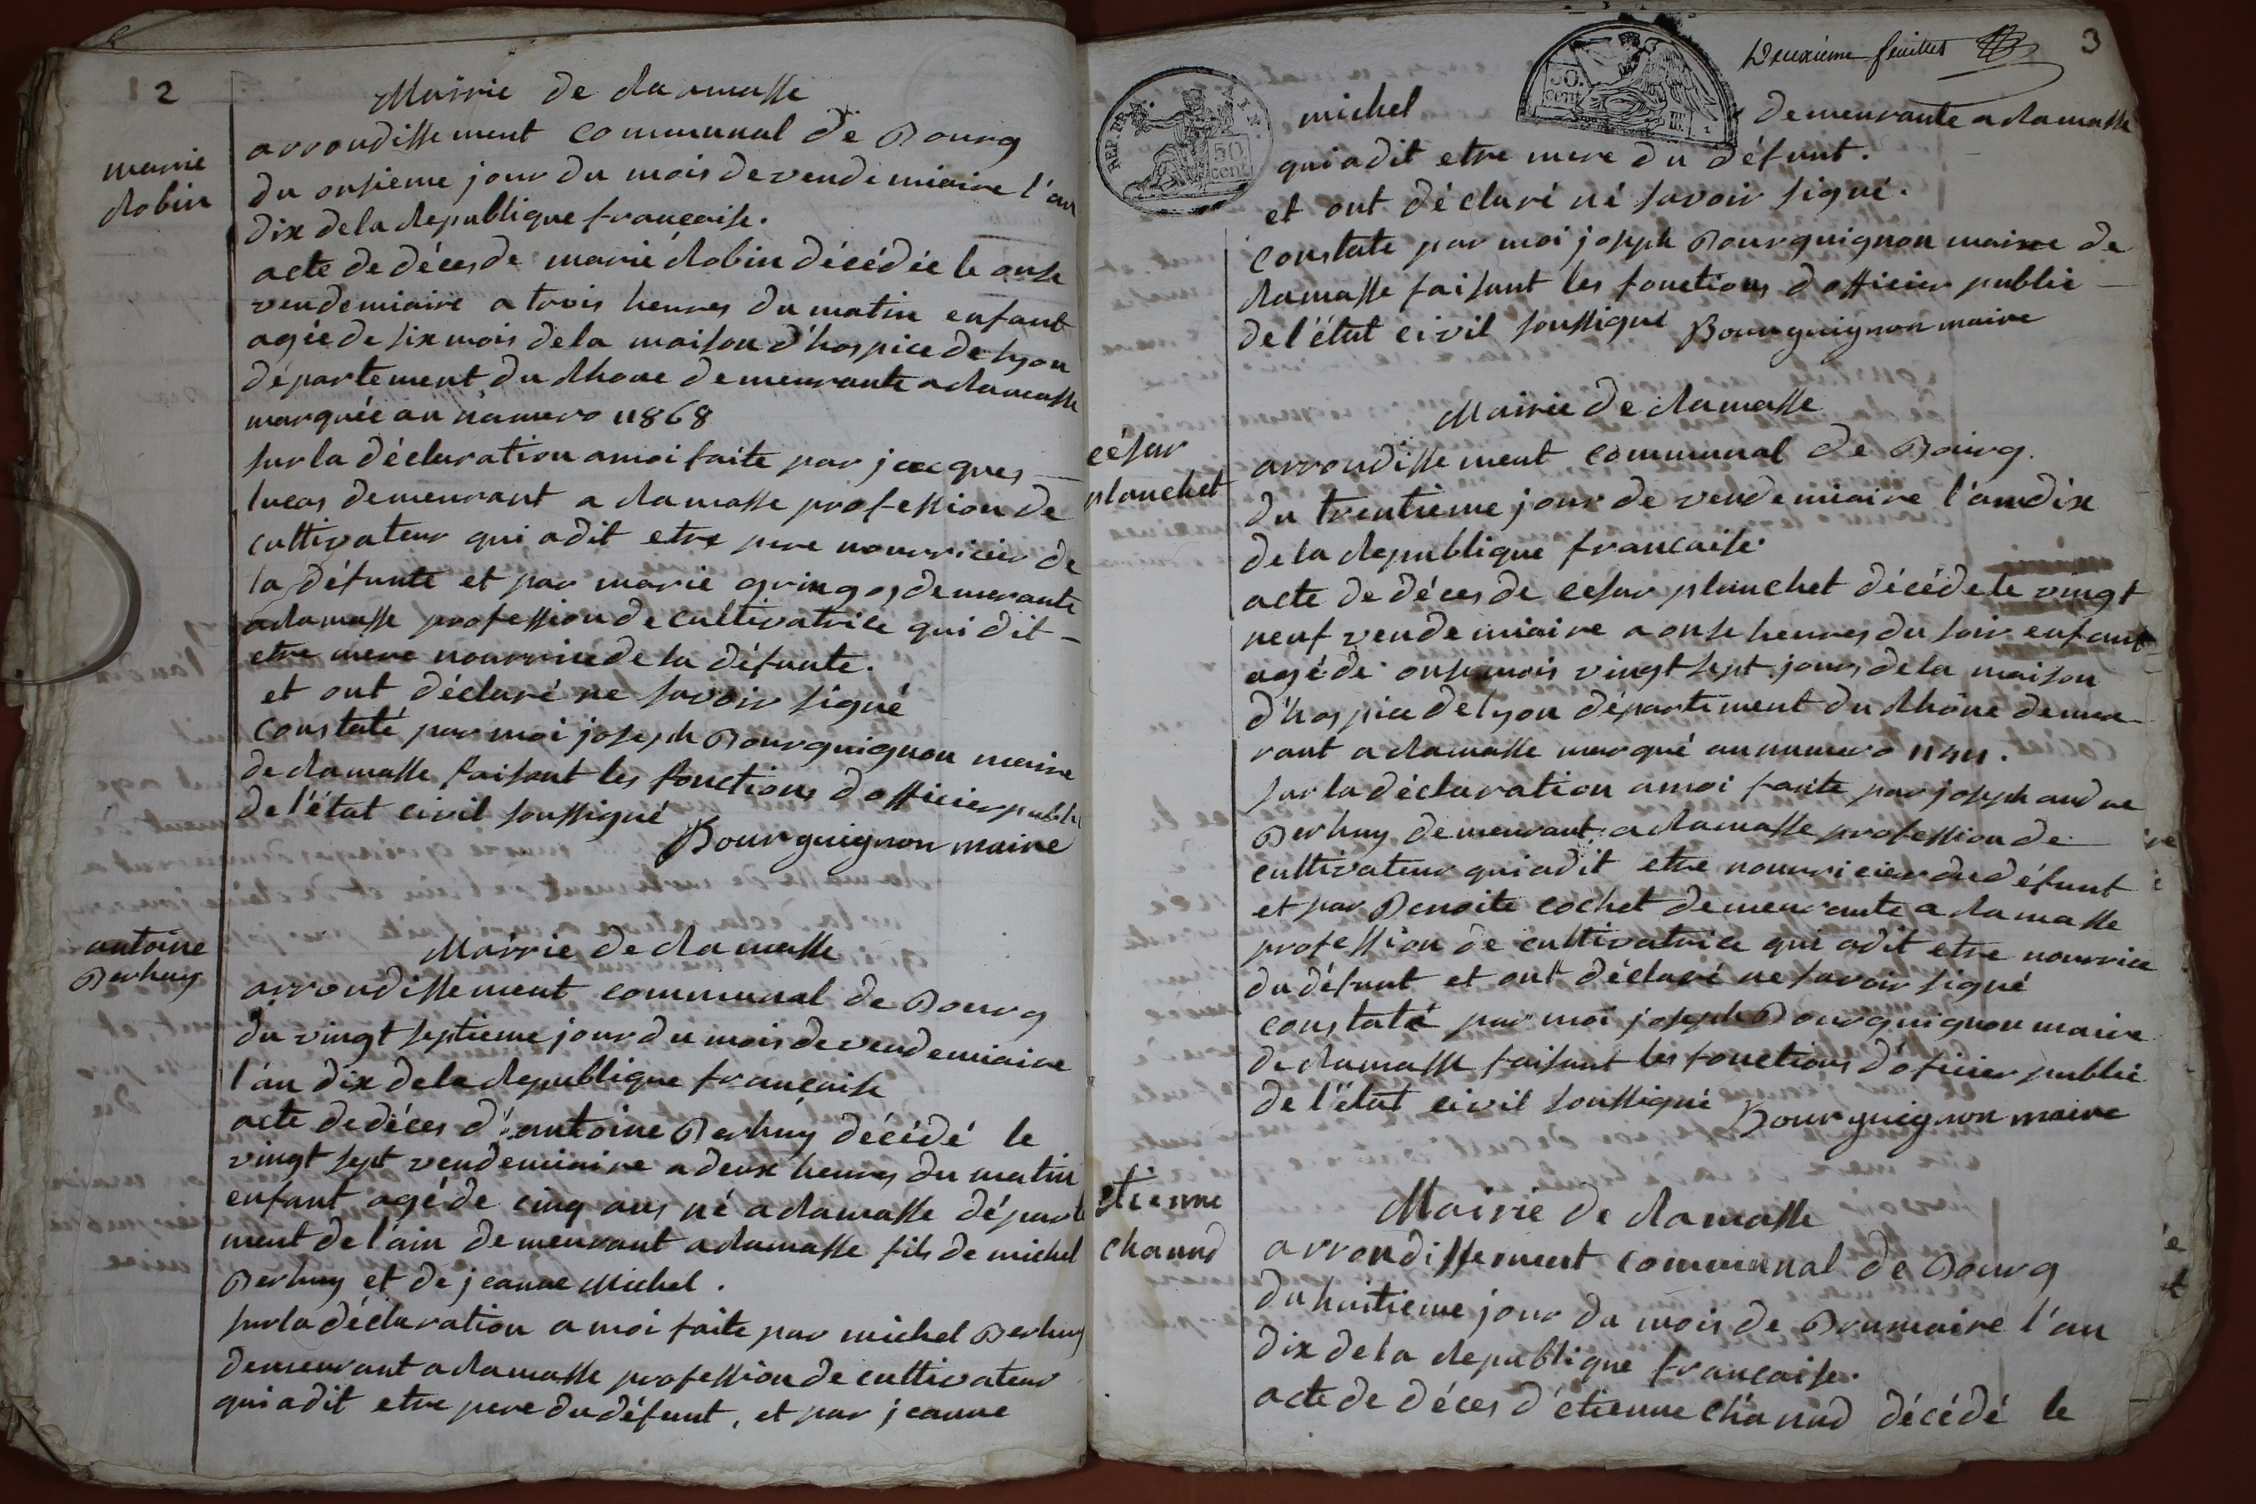 2
Mairie de Ramasse
arrondissement communal de Bourg
marie
Robin
du onsieme jour du mois de vendemiaire l'an
dix de la Republique francaise.
acte de déces de marie Robin décédée le onse
vendemiaire a trois heures du matin enfant
agée de six mois de la maison d'hospice de lyon
département du Rhone demeurante a Ramasse
marquée au numero 11868
sur la déclaration a moi faite par jacques
lucas demeurant a Ramasse profession de
cultivateur qui a dit etre pere nourricier de
la défunte et par marie gringoz demerante
a Ramasse profession de cultivatrice qui dit
etre mere nourrice de la défunte.
et ont déclaré ne savoir signé
Constaté par moi joseph Bourguignon maire
de Ramasse faisant les fonctions d officier public
de l'état civil soussigné
Bourguignon maire
antoine
Berhuy
Mairie de Ramasse
arrondissement communal de Bourg
du vingt septieme jour du mois de vendemiaire
l'an dix de la Republique francaise
acte de déces d'antoine Berhuy décédé le
vingt sept vendemiaire a deux heures du matin
enfant agé de cinq ans né a Ramasse départe
ment de l'ain demeurant a Ramasse fils de michel
Berhuy et de jeanne Michel.
sur la déclaration a moi faite par michel Berhuy
demeurant a Ramasse profession de cultivateur
qui a dit etre pere du défunt, et par jeanne
Deuxieme feuillet
3
REP. FRA.
50
cent
50.
cent
michel demeurante a Ramasse
qui a dit etre mere du défunt.
et ont déclaré né savoir signé.
Constate par moi joseph Bourguignon maire de
Ramasse faisant les fonctions d officier public
de l'état civil soussigné Bourguignon maire
césar
planchet
Mairie de Ramasse
arrondissement communal de Bourg.
du trentieme jour de vendemiaire l'an dix
de la Republique francaise.
acte de déces de cesar planchet décédé le vingt
neuf vendemiaire a onse heures du soir enfant
agé de onse mois vingt sept jours de la maison
d'hospice de lyon département du Rhône demeu
rant a Ramasse marqué au numero
sur la déclaration a moi faite par joseph andre
Berhuy demeurant a Ramasse profession de
cultivateur qui a dit etre nourricier du défunt
et par Benoite cochet demeurante a Ramasse
profession de cultivatrice qui a dit etre nourrice
du défunt et ont déclaré ne savoir signé
constaté par moi joseph Bourguignon maire
de Ramasse faisant les fonctions d'oficier public
de l'état civil soussigné Bourguignon maire
etienne
chanud
Mairie de Ramasse
arrondissement communal de Bourg
du huitieme jour du mois de Brumaire l'an
dix de la Republique francaise.
acte de déces d'étienne Chanud décédé le